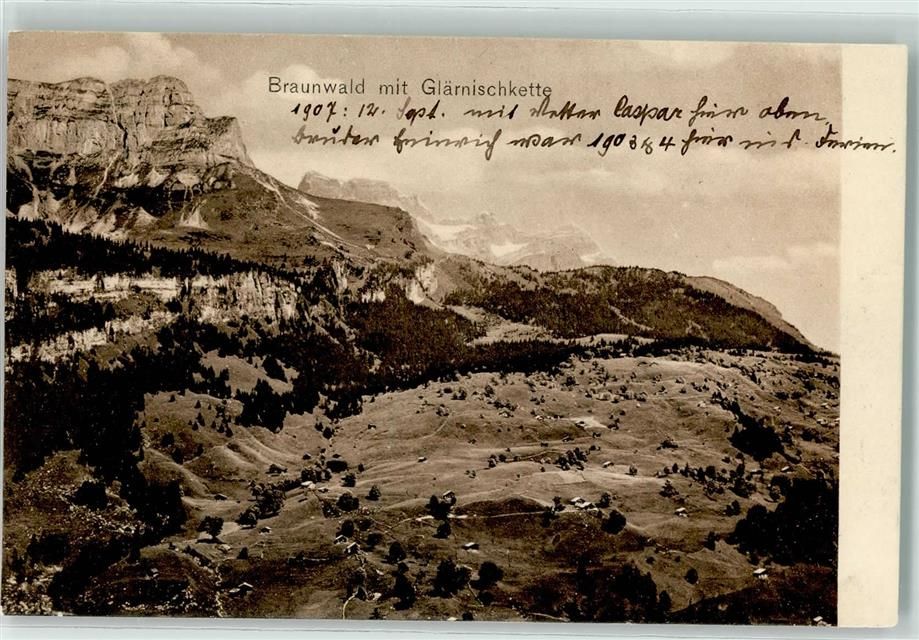 Braunwald mit Glärnischkette
1907: 12. Sept. mit Vetter Caspar hier oben,
Bruder Heinrich war 1903 & 4 hier in d. Ferien.